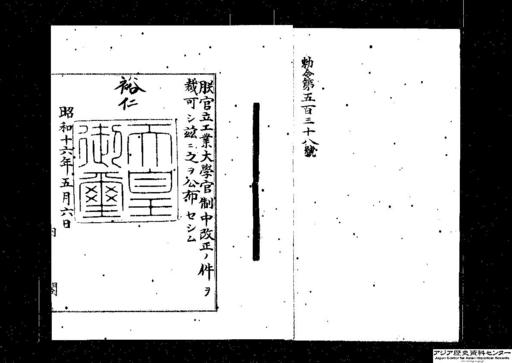 勅令第五百三十八號
朕官立工業大學官制中改正ノ件ヲ
裁可シ茲ニ之ヲ公布セシム
裕仁
天皇
御璽
昭和十六年五月六日
内閣
アジア歴史資料センター
Japan Center for Asian Historical Records